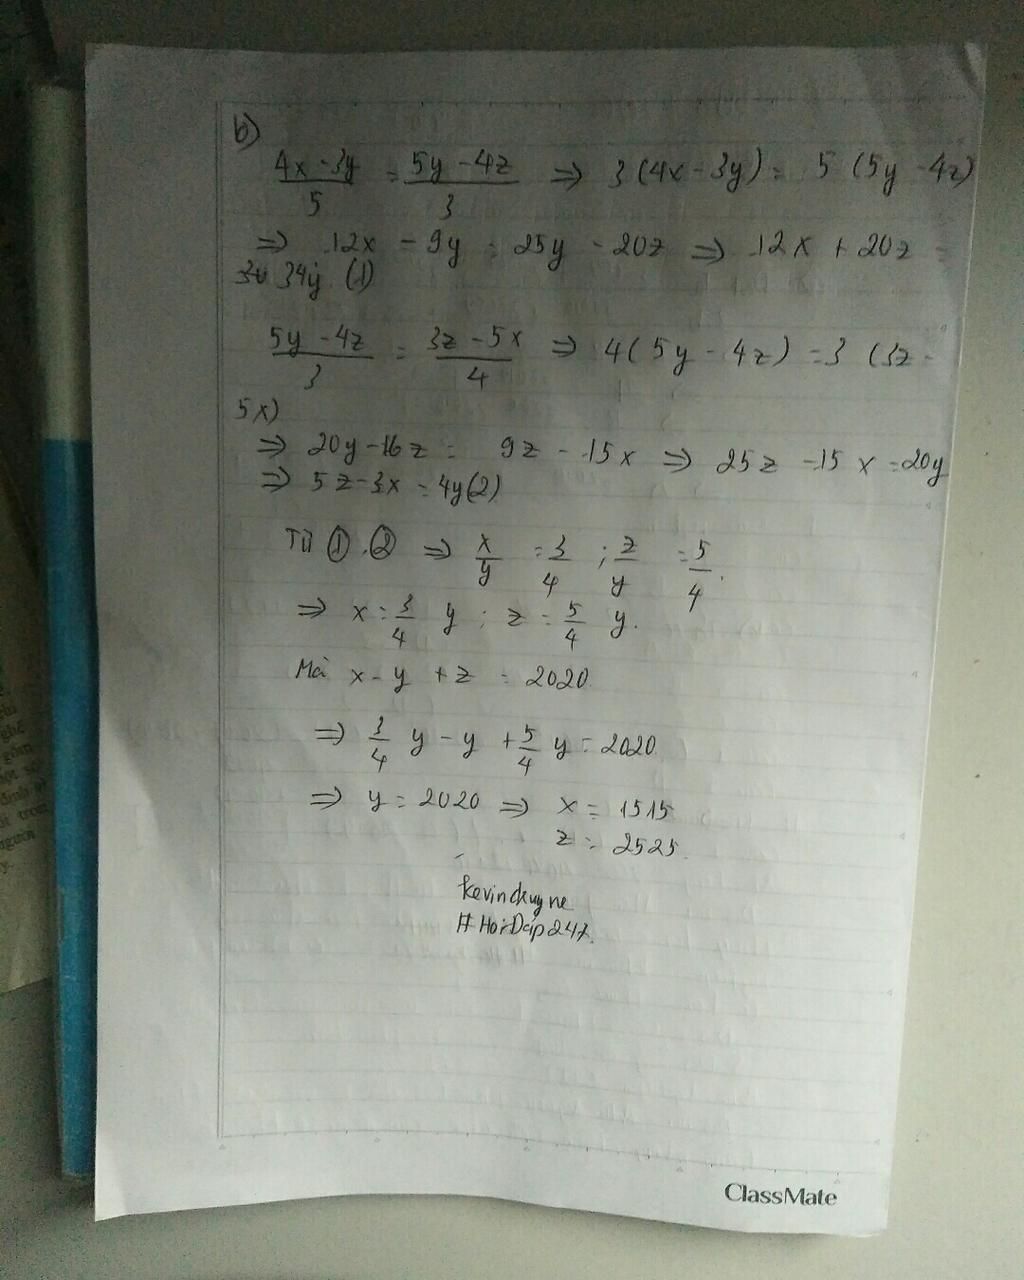 b)
4x - 3y / 5 = 5y - 4z / 3 ⇒ 3(4x - 3y) = 5 (5y - 4z)
⇒ 12x - 9y = 25y - 20z ⇒ 12x + 20z =
34y (1)
5y - 4z / 3 = 3z - 5x / 4 ⇒ 4(5y - 4z) = 3 (3z -
5x)
⇒ 20y - 16z = 9z - 15x ⇒ 25z - 15x = 20y
⇒ 5z - 3x = 4y (2)
Từ ①, ② ⇒ x/y = 3/4 ; z/y = 5/4.
⇒ x = 3/4 y ; z = 5/4 y.
Mà x - y + z = 2020.
⇒ 3/4 y - y + 5/4 y = 2020
⇒ y = 2020 ⇒ x = 1515
z = 2525.
#HoiDap247.
ClassMate